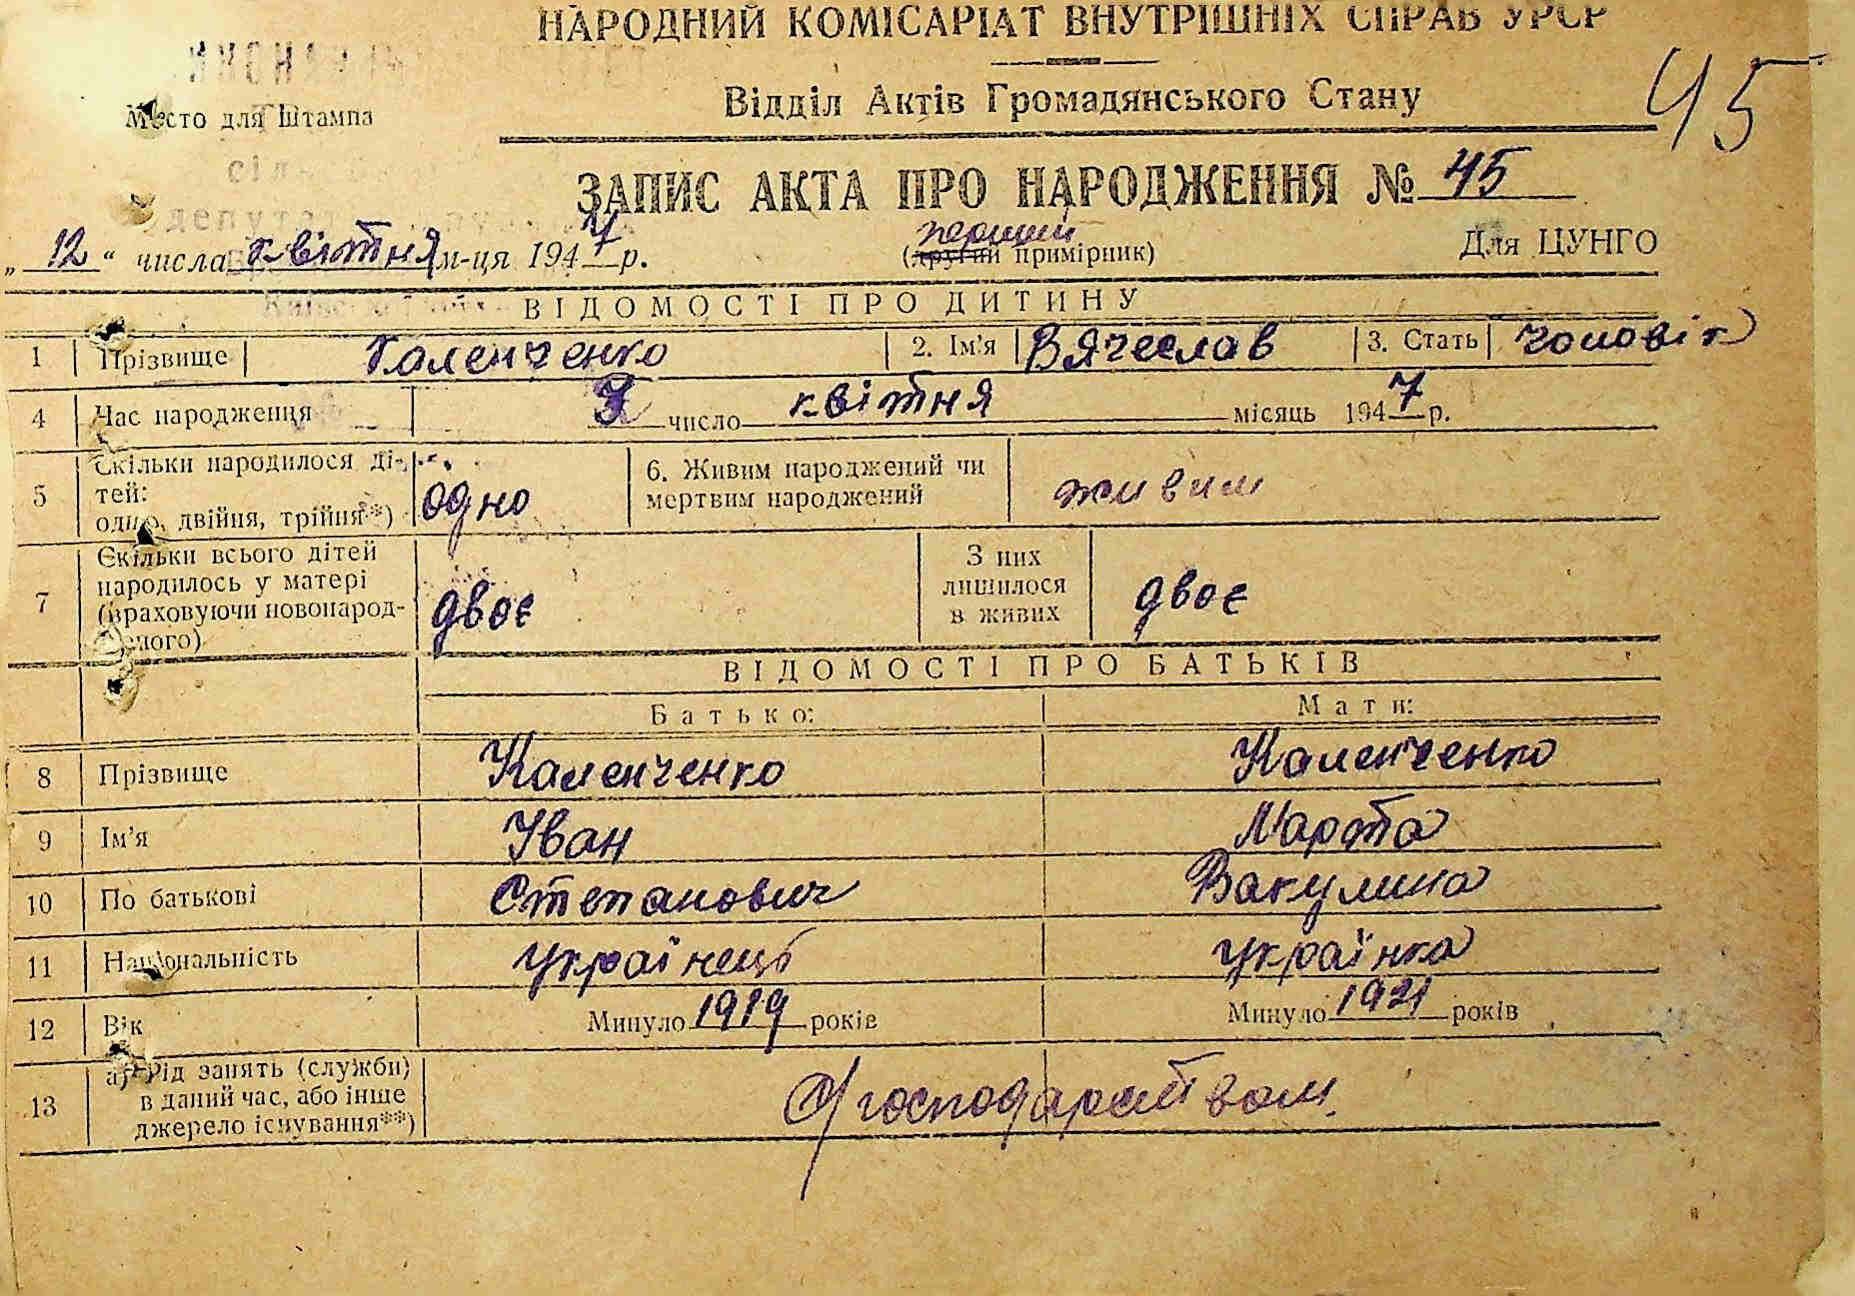 НАРОДНИЙ КОМІСАРІАТ ВНУТРІШНІХ СПРАВ УРСР
Відділ Актів Громадянського Стану
45
Место для Штампа
ЗАПИС АКТА ПРО НАРОДЖЕННЯ № 45
„12“ числа квітня м-ця 1947 р.
перший
(другий примірник)
Для ЦУНГО
ВІДОМОСТІ ПРО ДИТИНУ
1 Прізвище Каленченко 2. Ім'я Вячеслав 3. Стать чоловік
4 Час народження число квітня місяць 1947 р.
5 Скільки народилося ді-
тей:
одно, двійня, трійня*) одно
6. Живим народжений чи
мертвим народжений живим
7 Скільки всього дітей
народилось у матері
(враховуючи новонарод-
женого) двоє
З них
лишилося
в живих двоє
ВІДОМОСТІ ПРО БАТЬКІВ
Батько: Мати:
8 Прізвище Каленченко Каленченко
9 Ім'я Іван Марта
10 По батькові Степанович Вакулина
11 Національність українець українка
12 Вік Минуло 1919 років Минуло 1921 років
13 а) Рід занять (служби)
в даний час, або інше
джерело існування**) господарством